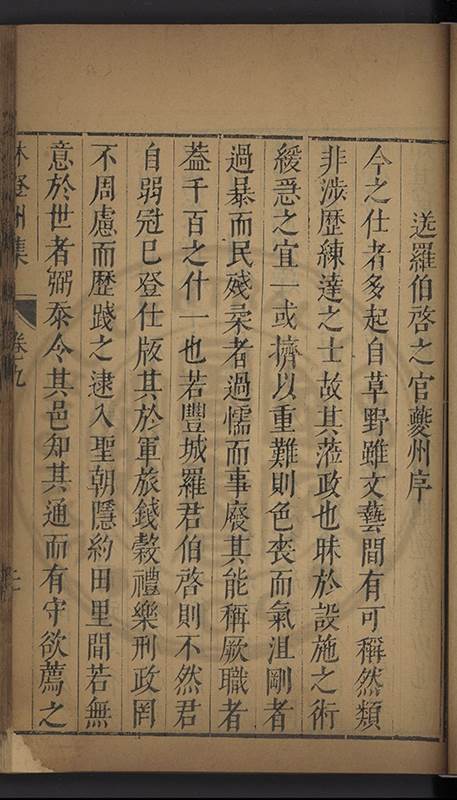 送羅伯啓之官夔州序
今之仕者多起自草野雖文藝間有可稱然類
非涉歷練達之士故其蒞政也昧於設施之術
緩急之宜一或擠以重難則色喪而氣沮剛者
過暴而民殘柔者過懦而事廢其能稱厥職者
葢千百之什一也若豐城羅君伯啓則不然君
自弱冠已登仕版其於軍旅錢穀禮樂刑政罔
不周慮而歷踐之逮入聖朝隱約田里間若無
意於世者弼忝令其邑知其通而有守欲薦之
林登州集 卷九